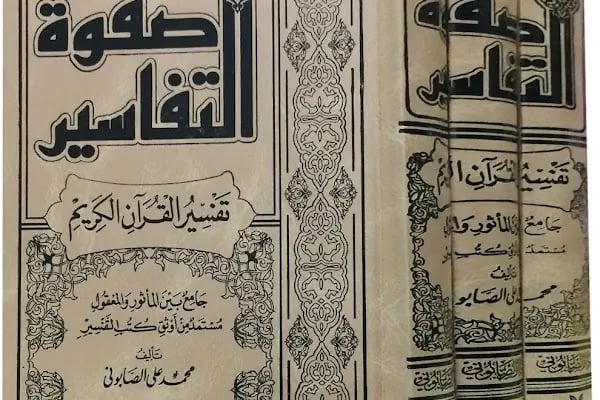 صفوة
التفاسير
تفسير القرآن الكريم
جامع بين المأثور والمعقول
مستمد من أوثق كتب التفسير
تأليف
محمد علي الصابوني
صفوة
التفاسير
تفسير القرآن الكريم
جامع بين المأثور والمعقول
مستمد من أوثق كتب
تأليف
محمد علي الصابو